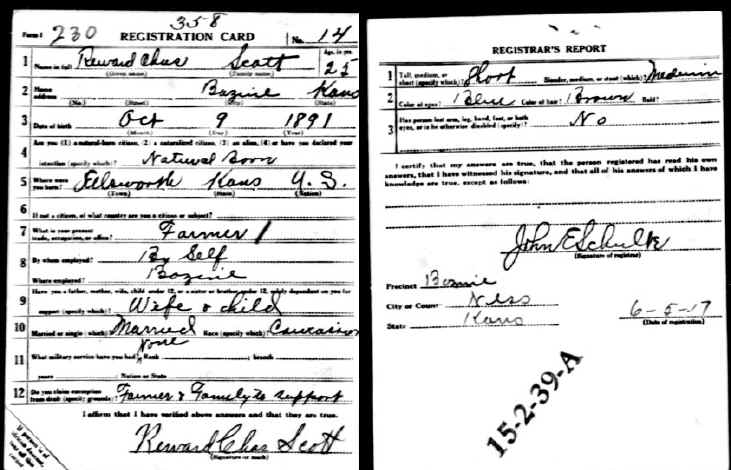 358
Form 1 230 REGISTRATION CARD No. 14
1 Name in full Reward Chas Scott Age, in yrs. 25
(Given name) (Family name)
2 Home address Bazine Kans
(No.) (Street) (City) (State)
3 Date of birth Oct 9 1891
(Month) (Day) (Year)
4 Are you (1) a natural-born citizen, (2) a naturalized citizen, (3) an alien, (4) or have you declared your
intention (specify which)? Natural Born
5 Where were you born? Ellsworth Kans U.S.
(Town) (State) (Nation)
6 If not a citizen, of what country are you a citizen or subject?
7 What is your present trade, occupation, or office? Farmer
8 By whom employed? By Self
Where employed? Bazine
9 Have you a father, mother, wife, child under 12, or a sister or brother under 12, solely dependent on you for
support (specify which)? Wife & child
10 Married or single (which)? Married Race (specify which)? Caucasian
11 What military service have you had? Rank None ; branch
years ; Nation or State
12 Do you claim exemption from draft (specify grounds)? Farmer & Family to support
I affirm that I have verified above answers and that they are true.
Reward Chas Scott
(Signature or mark)
REGISTRAR'S REPORT
1 Tall, medium, or short (specify which)? Short Slender, medium, or stout (which)? Medium
2 Color of eyes? Blue Color of hair? Brown Bald?
3 Has person lost arm, leg, hand, foot, or both
eyes, or is he otherwise disabled (specify)? No
I certify that my answers are true, that the person registered has read his own
answers, that I have witnessed his signature, and that all of his answers of which I have
knowledge are true, except as follows:
John E Schulte
(Signature of registrar)
Precinct Bazine
City or County Ness
State Kans
6-5-17
(Date of registration)
15-2-39-A